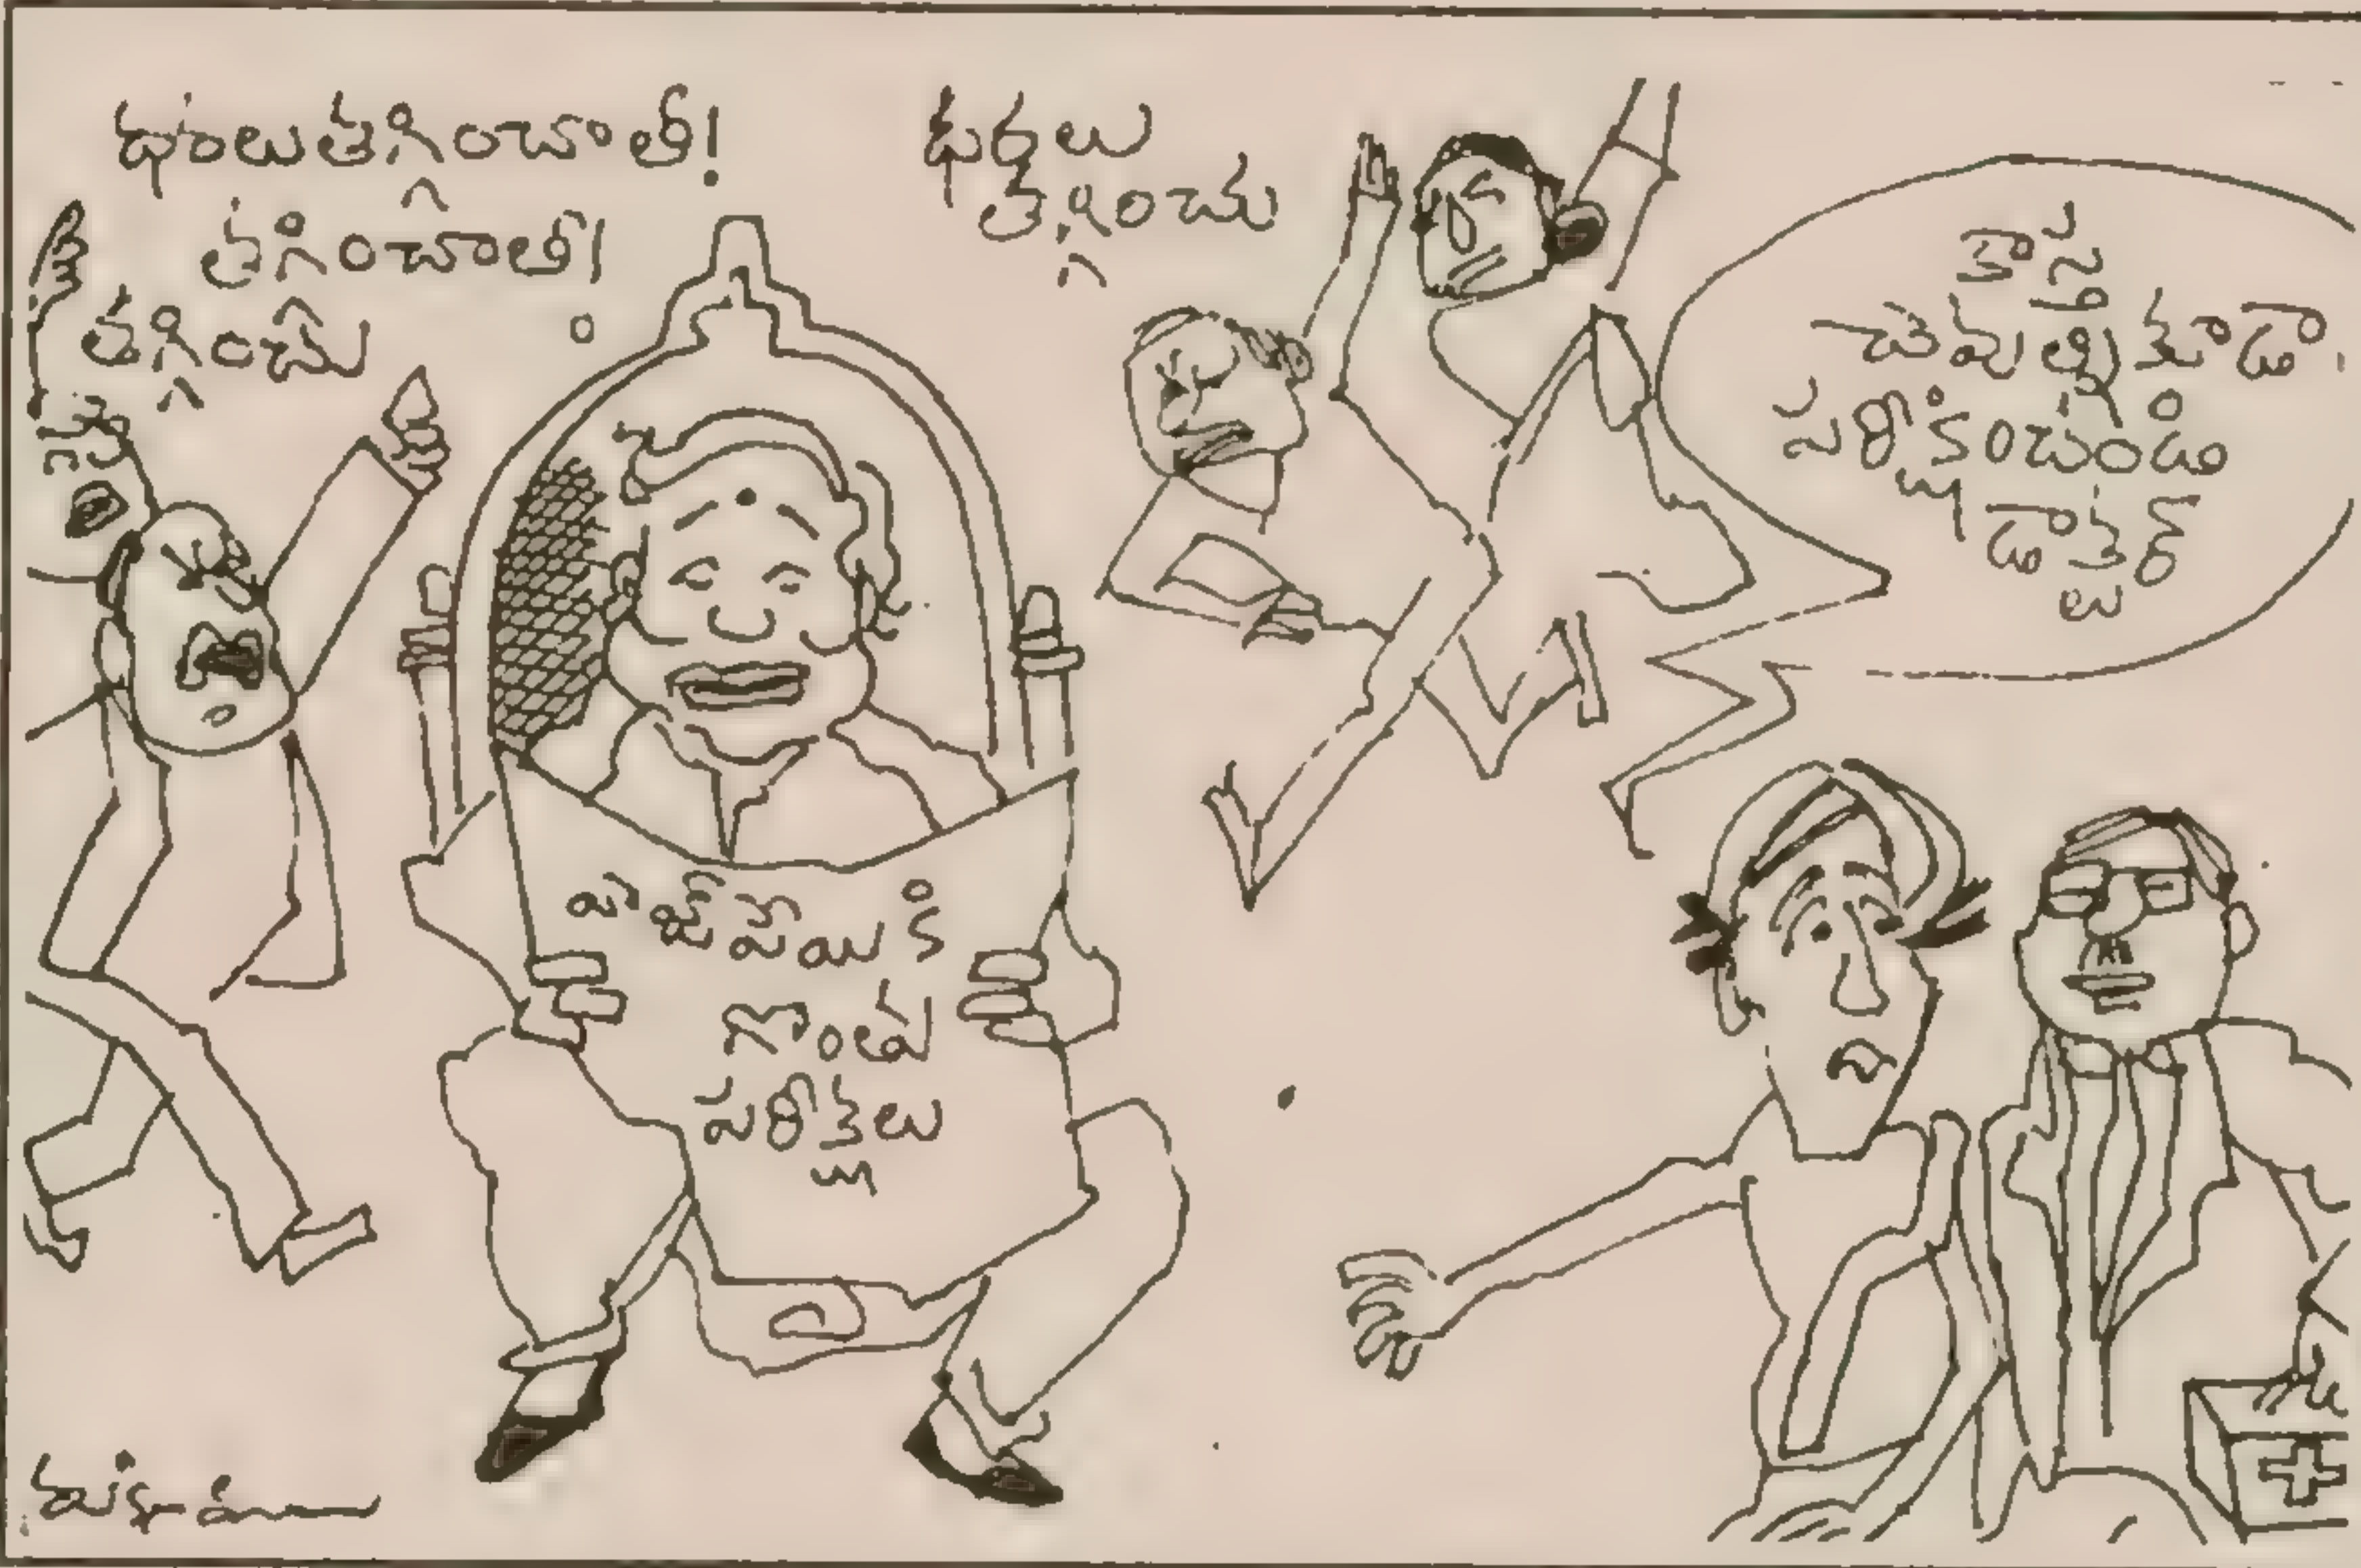 ధరలు తగ్గించాలి!
తగ్గించాలి!
తగ్గించు
ధరలు
తగ్గించు
కాస్త
చెవులు కూడా
పరీక్షించండి
డాక్టర్
వాజ్‌పేయికి
గొంతు
పరీక్షలు